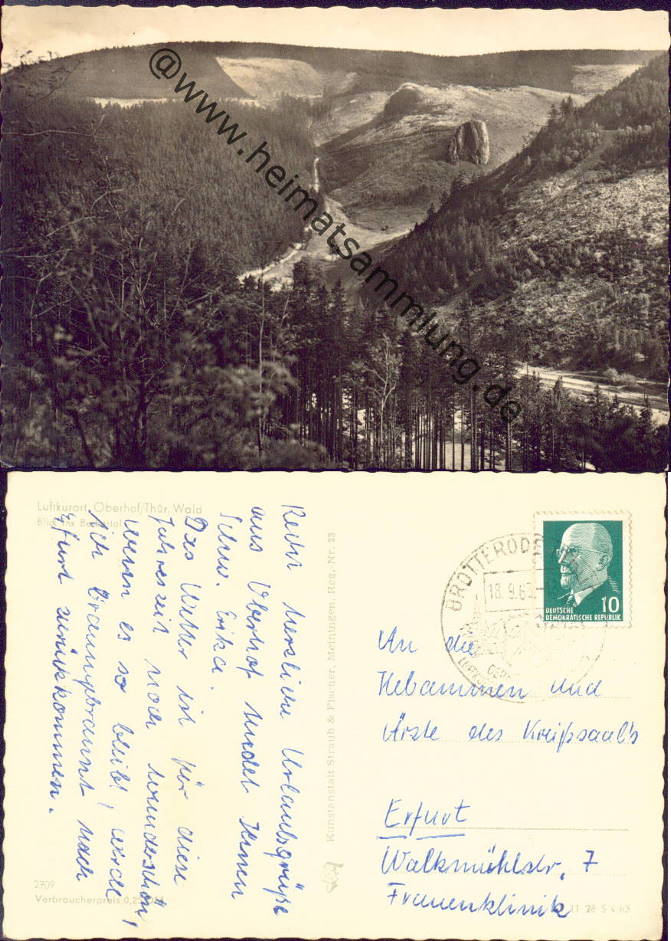 @www.heimatsammlung.de
Luftkurort Oberhof/Thür. Wald
Blick ins
Recht herzliche Urlaubsgrüße
aus Oberhof sendet Ihnen
Schw. Erika.
Das Wetter ist für diese
Jahreszeit noch wunderschön,
wenn es so bleibt, werde
ich braungebrannt nach
Erfurt zurückkommen.
2709
Verbraucherpreis 0,2
Kunstanstalt Straub & Fischer, Meiningen, Reg. Nr. 23
BROTTERODE
18.9.6
10
DEUTSCHE
DEMOKRATISCHE REPUBLIK
An die
Hebammen und
Ärzte des Kreißsaal's
Erfurt
Walkmühlstr. 7
Frauenklinik